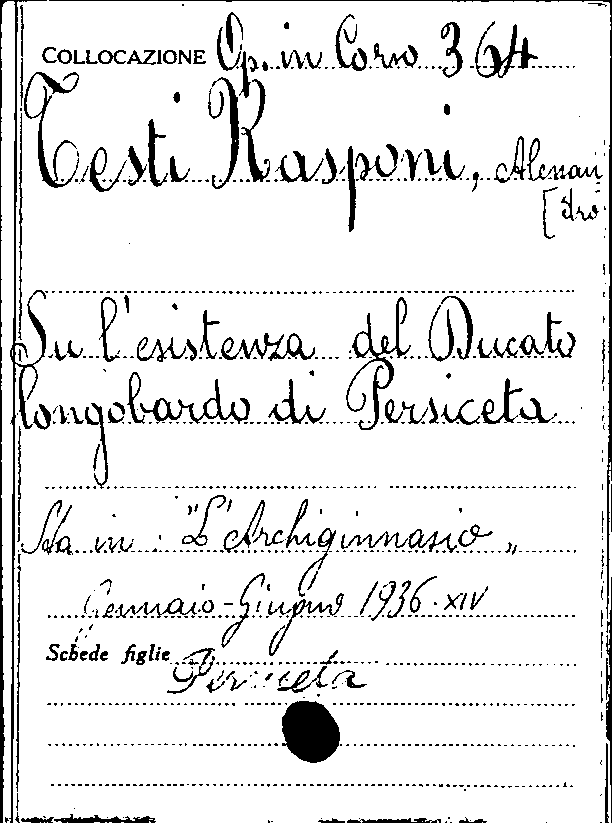 COLLOCAZIONE Op. in Corso 364
Testi Rasponi, Alessan
[dro
Su l'esistenza del Ducato
longobardo di Persiceta
Sta in: "L'Archiginnasio„
Gennaio-Giugno 1936·XIV
Schede figlie
Persiceta